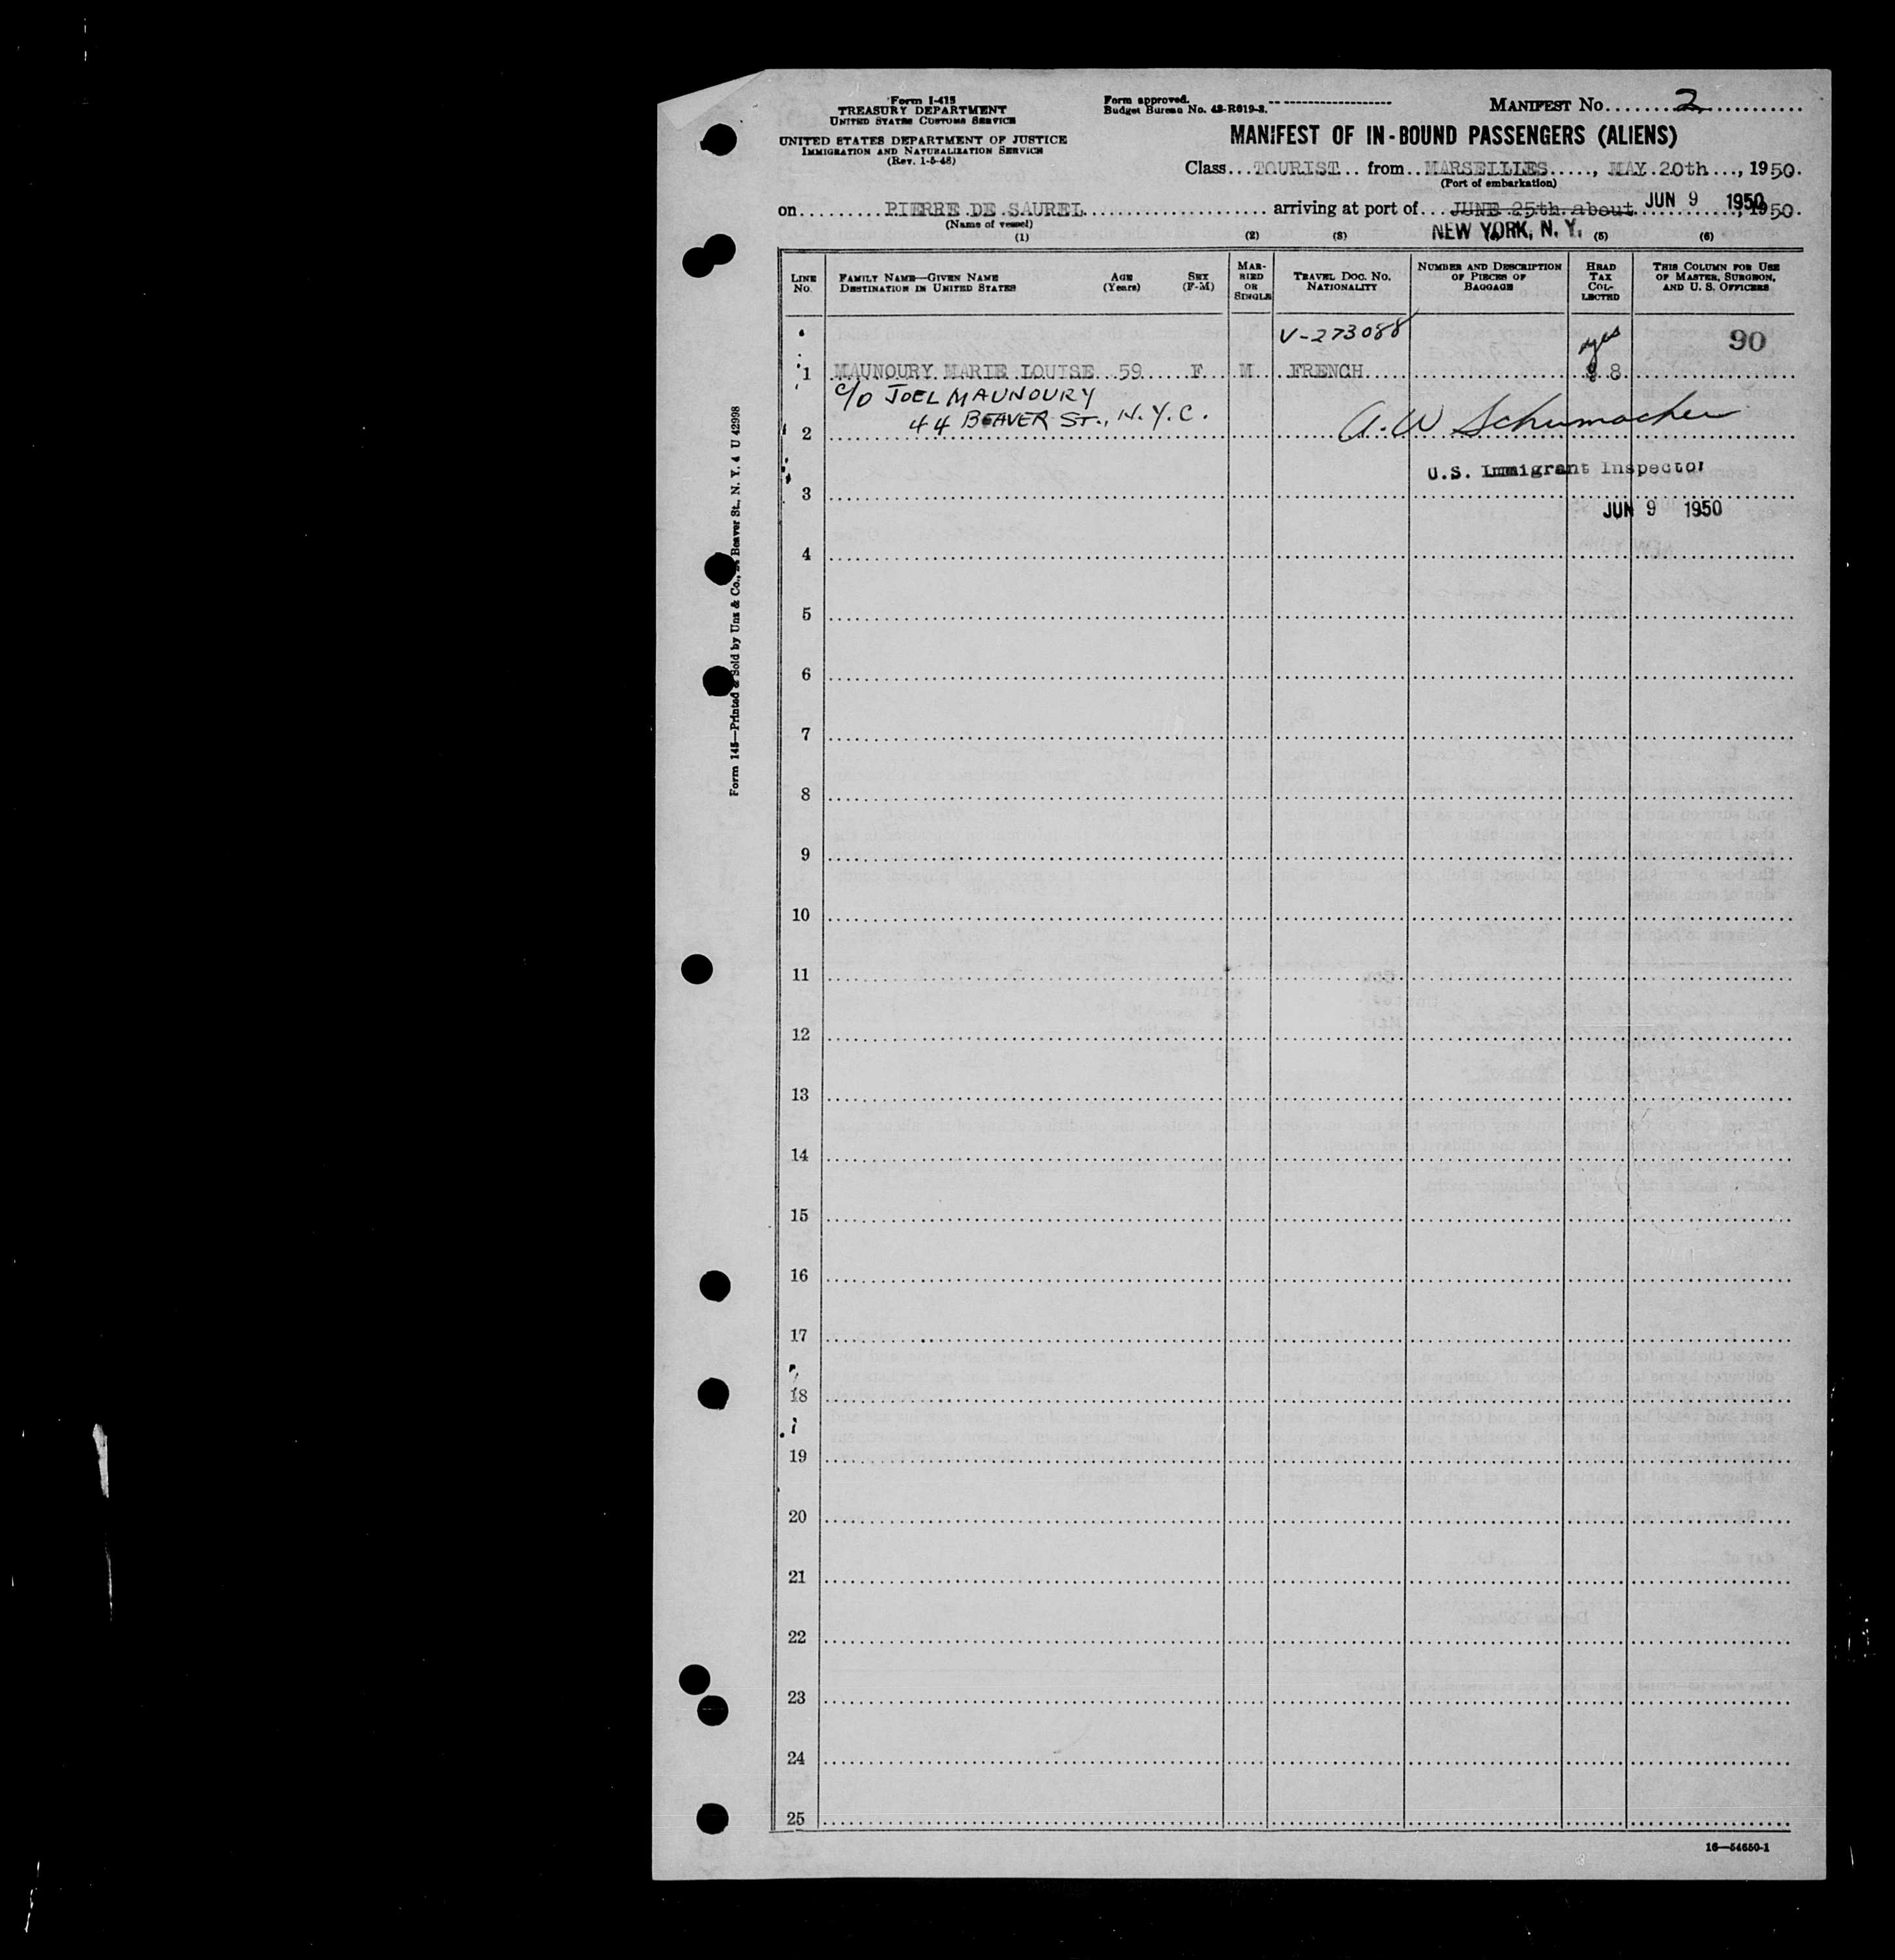 Form I-415
TREASURY DEPARTMENT
UNITED STATES CUSTOMS SERVICE
UNITED STATES DEPARTMENT OF JUSTICE
IMMIGRATION AND NATURALIZATION SERVICE
(Rev. 1-5-48)
Form approved.
Budget Bureau No. 43-R019-3.
MANIFEST No. 2
MANIFEST OF IN-BOUND PASSENGERS (ALIENS)
Class TOURIST from MARSEILLES, MAY 20th, 1950.
(Port of embarkation)
on PIERRE DE SAUREL arriving at port of JUNE 25th about JUN 9 1950, 1950.
(Name of vessel)
NEW YORK, N. Y.
(1) (2) (3) (4) (5) (6)
LINE No.
FAMILY NAME—GIVEN NAME
DESTINATION IN UNITED STATES
AGE (Years)
SEX (F-M)
MARRIED OR SINGLE
TRAVEL DOC. NO.
NATIONALITY
NUMBER AND DESCRIPTION OF PIECES OF BAGGAGE
HEAD TAX COLLECTED
THIS COLUMN FOR USE OF MASTER, SURGEON, AND U. S. OFFICERS
V-273088 yes 90
1 MAUNOURY MARIE LOUISE 59 F M FRENCH $ 8
c/o JOEL MAUNOURY
44 BEAVER ST., N.Y.C.
2 A. W Schumacher
U.S. Immigrant Inspector
3
JUN 9 1950
4
5
6
7
8
9
10
11
12
13
14
15
16
17
18
19
20
21
22
23
24
25
16—54650-1
Form 145—Printed & Sold by Unz & Co., Beaver St., N. Y. 4 U 42998